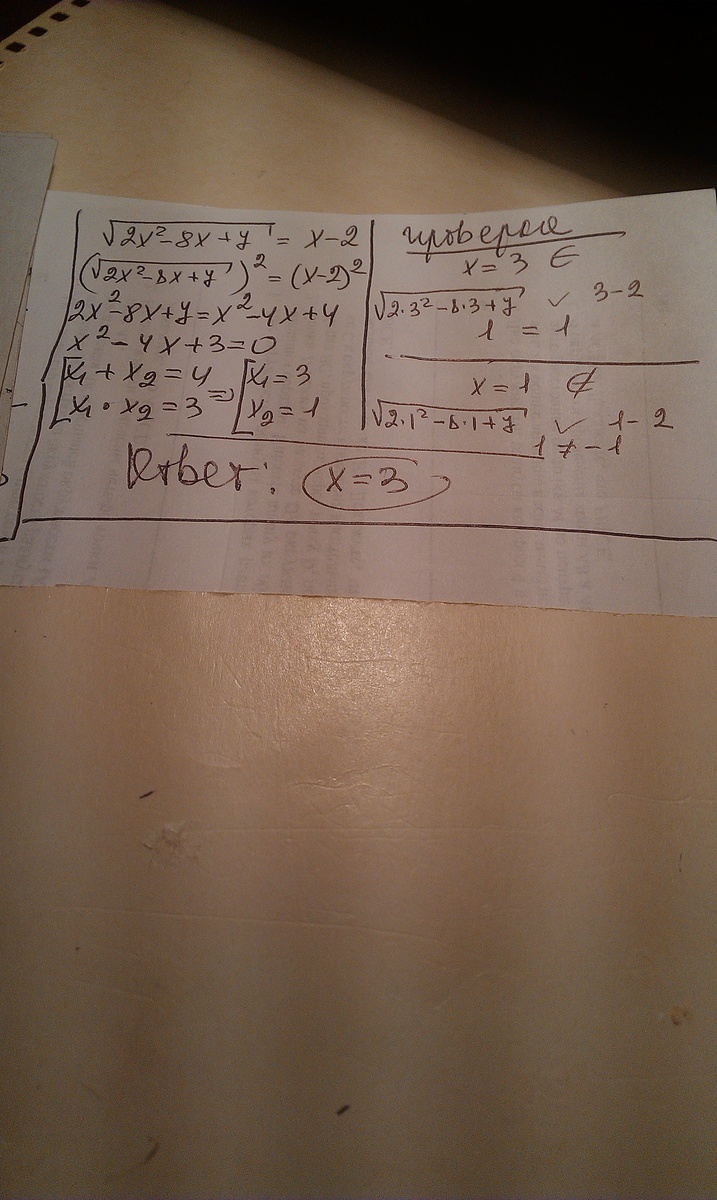 √2x²-8x+7 = x-2
(√2x²-8x+7)² = (x-2)²
2x²-8x+7=x²-4x+4
x²-4x+3=0
[x₁+x₂=4 => [x₁=3
[x₁•x₂=3 [x₂=1
проверка
x=3 ∈
√2·3²-8·3+7 ✓ 3-2
1 = 1
x=1 ∉
√2·1²-8·1+7 ✓ 1-2
1≠-1
Ответ: x=3